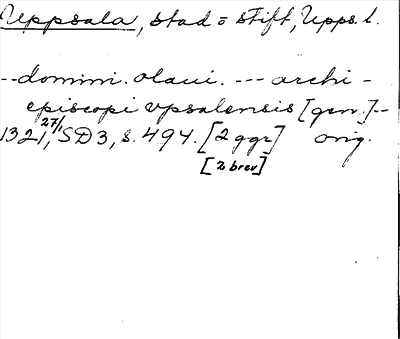 Uppsala, stad = stift, Upps. l.
-- domini. olaui. --- archi-
episcopi vpsalensis [gen.] --
1321, 27/1, SD3, s. 494. [2 ggr] orig.
[2 brev]